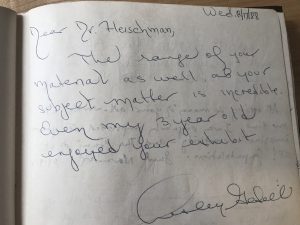 Wed. 8/17/88
Dear Mr. Fleischman,
The range of your
material as well as your
subject matter is incredible.
Even my 3 year old
enjoyed your exhibit.